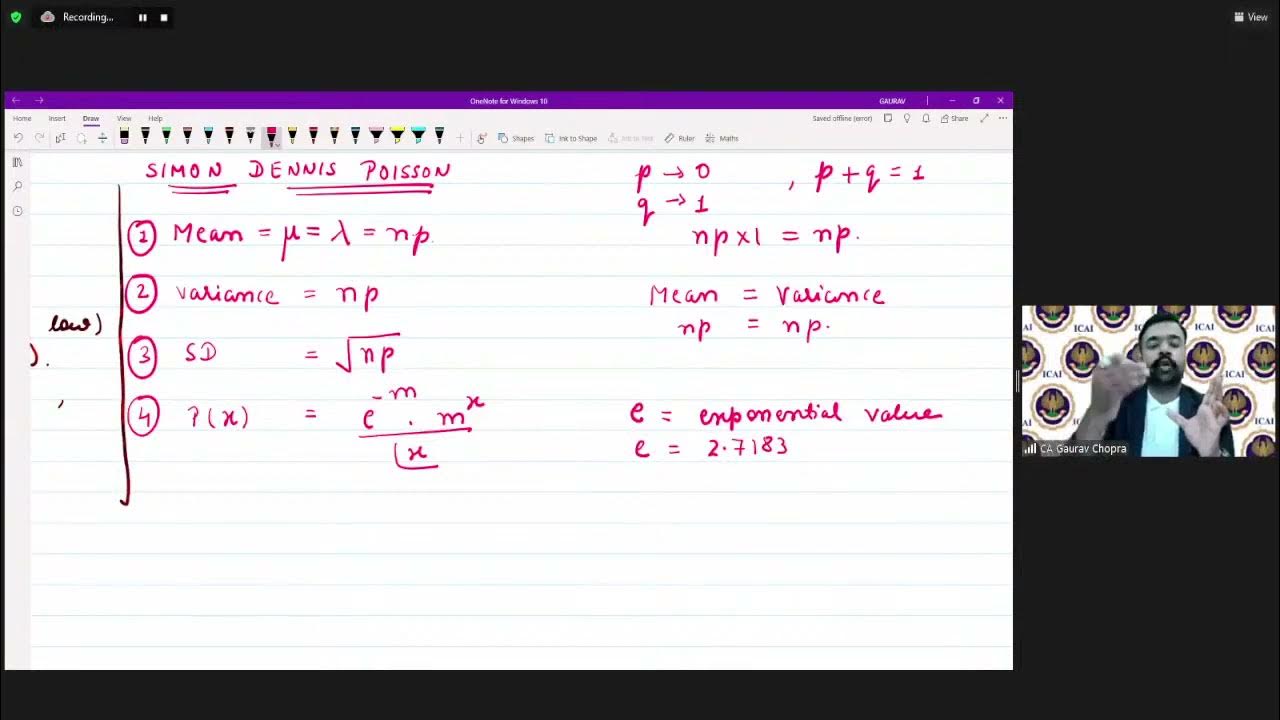 Recording...
View
OneNote for Windows 10
GAURAV
Home Insert Draw View Help
Saved offline (error)
Share
Shapes
Ink to Shape
Ink to Text
Ruler
Maths
SIMON DENNIS POISSON
① Mean = μ = λ = np.
② Variance = np
③ SD = √np
④ P(x) = e^-m . m^x / ⌊x
law)
).
,
p → 0 , p + q = 1
q → 1
np × 1 = np.
Mean = Variance
np = np.
e = exponential value
e = 2.7183
ICAI
ICAI
ICAI
ICAI
CA Gaurav Chopra